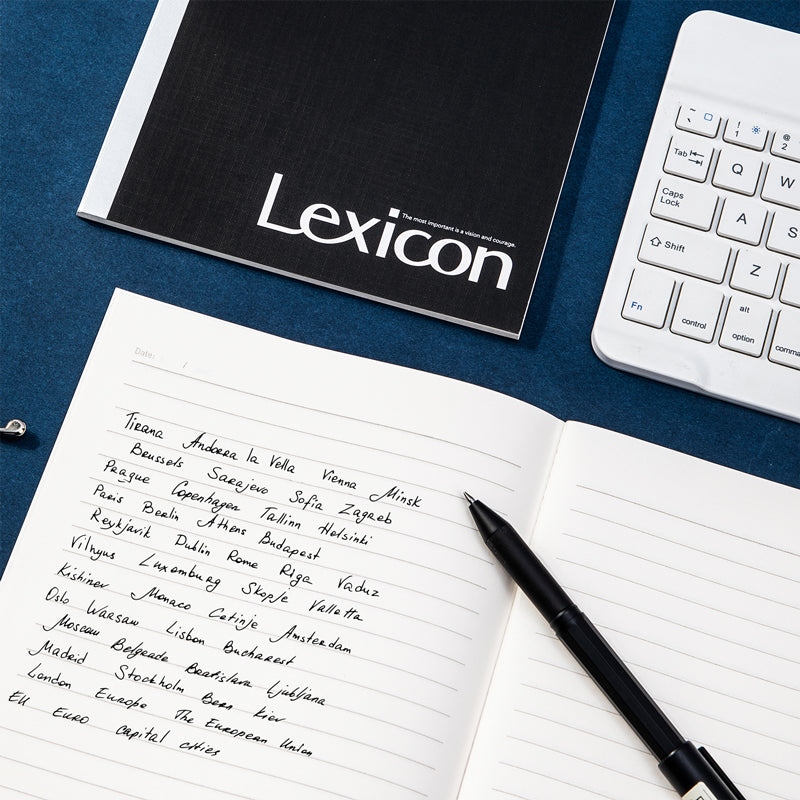 Lexicon
The most important is a vision and courage.
~ `
! 1
@ 2
Tab
Q
W
Caps Lock
A
S
Shift
Z
Fn
control
alt option
Date: /
Tirana Andorra la Vella Vienna Minsk
Brussels Sarajevo Sofia Zagreb
Prague Copenhagen Tallinn Helsinki
Paris Berlin Athens Budapest
Reykjavik Dublin Rome Riga Vaduz
Vilnyus Luxemburg Skopje Valletta
Kishinev Monaco Cetinje Amsterdam
Oslo Warsaw Lisbon Bucharest
Moscow Belgrade Bratislava Ljubljana
Madrid Stockholm Bern Kiev
London Europe The European Union
EU Euro capital cities